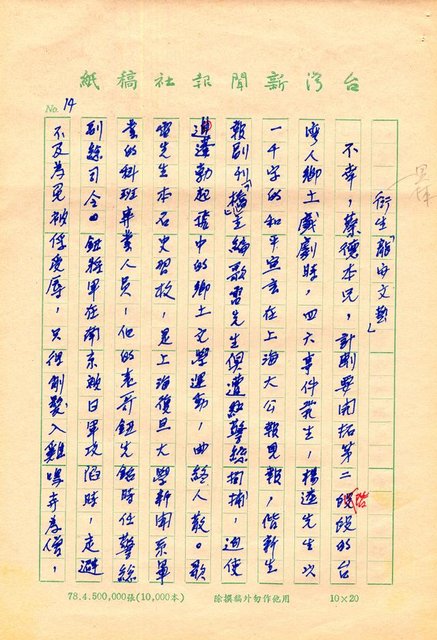 台灣新聞報社稿紙
No. 14
衍生「龍安文藝」
不幸，蔡德本兄，計劃要開拓第二階段的台
灣人鄉土戲劇時，四六事件發生，楊逵先生以
一千字的和平宣言在上海大公報見報，偕新生
報副刊「橋」主編歌雷先生俱遭經警總拘捕，迫使
蓬勃起發中的鄉土文學運動，曲終人散。歌
雷先生本名史習枚，是上海復旦大學新聞系畢
業的科班專業人員，他的表哥鈕先銘時任警總
副總司令。鈕將軍在南京被日軍攻陷時，走避
不及為免被俘受辱，只得削髮入雞鳴寺為僧，
78.4.500,000張(10,000本)
除撰稿外勿作他用
10×20